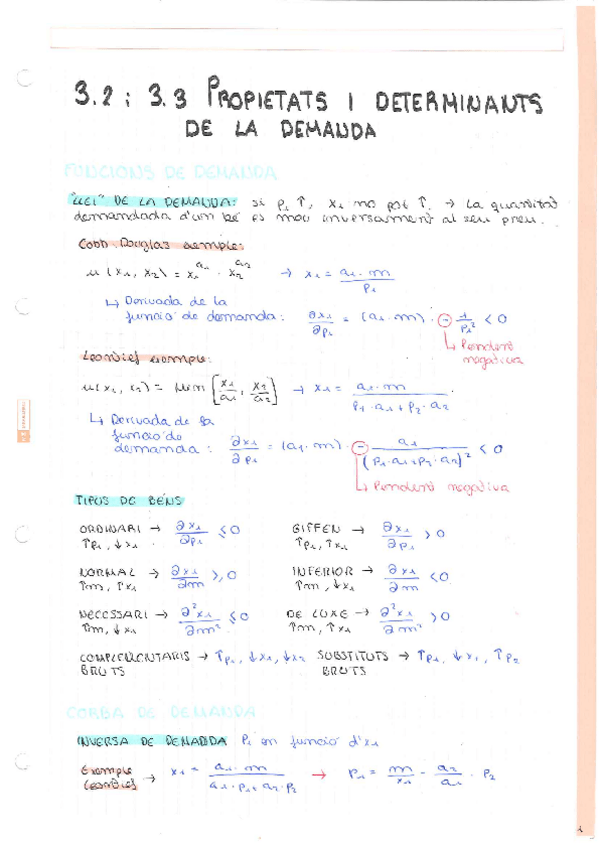 3.2 i 3.3 PROPIETATS I DETERMINANTS
DE LA DEMANDA
FUNCIONS DE DEMANDA
"LLEI" DE LA DEMANDA: si p₁ ↑, x₁ no pot ↑. → La quantitat
demandada d'un bé es mou inversament al seu preu.
Cobb-Douglas exemple:
u(x₁, x₂) = x₁^a₁ · x₂^a₂ → x₁ = a₁·m / p₁
↳ Derivada de la
funció de demanda: ∂x₁/∂p₁ = (a₁·m) · − 1/p₁² < 0
↳ Pendent
negativa
Leontief exemple:
u(x₁, x₂) = min [x₁/a₁, x₂/a₂] → x₁ = a₁·m / p₁·a₁+p₂·a₂
↳ Derivada de la
funció de
demanda: ∂x₁/∂p₁ = (a₁·m) · − a₁/(p₁·a₁+p₂·a₂)² < 0
↳ Pendent negativa
TIPUS DE BÉNS
ORDINARI → ∂x₁/∂p₁ ≤ 0 GIFFEN → ∂x₁/∂p₁ > 0
↑p₁, ↓x₁ ↑p₁, ↑x₁
NORMAL → ∂x₁/∂m ≥ 0 INFERIOR → ∂x₁/∂m < 0
↑m, ↑x₁ ↑m, ↓x₁
NECESSARI → ∂²x₁/∂m² ≤ 0 DE LUXE → ∂²x₁/∂m² > 0
↑m, ↓x₁ ↑m, ↑x₁
COMPLEMENTARIS → ↑p₁, ↓x₁, ↓x₂ SUBSTITUTS → ↑p₁, ↓x₁, ↑p₂
BRUTS BRUTS
CORBA DE DEMANDA
INVERSA DE DEMANDA P₁ en funció d'x₁
Exemple
Leontief → x₁ = a₁·m / a₁·p₁+a₂·p₂ → P₁ = m/x₁ - a₂/a₁ · P₂
1